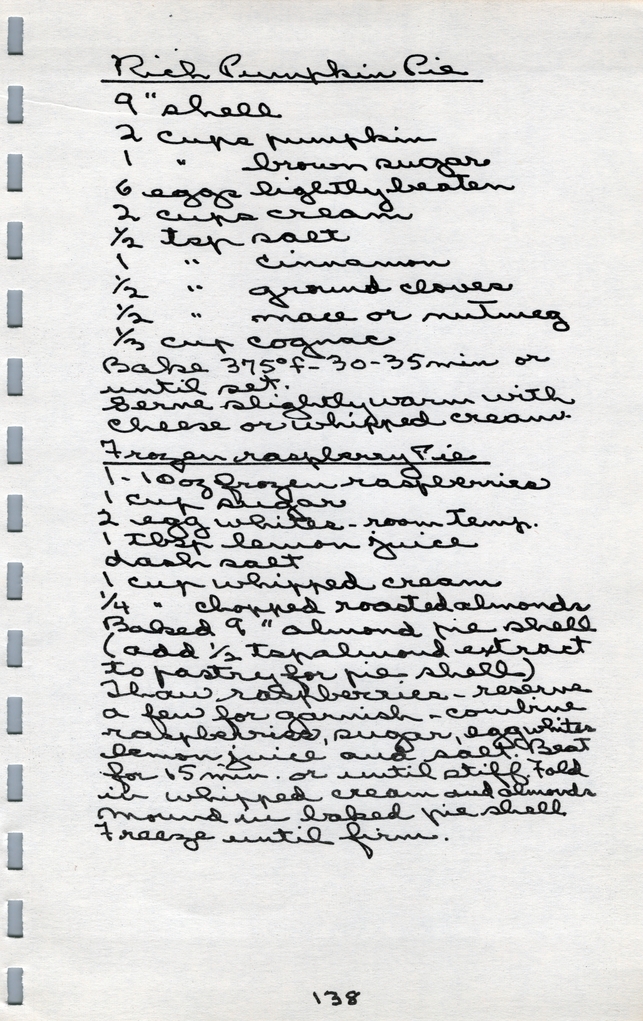 Rich Pumpkin Pie
9" shell
2 cups pumpkin
1 " brown sugar
6 eggs lightly beaten
2 cups cream
1/2 tsp salt
1 " cinnamon
1/2 " ground cloves
1/2 " mace or nutmeg
1/3 cup cognac
Bake 375°f-30-35 min or
until set.
Serve slightly warm with
cheese or whipped cream.
Frozen raspberry Pie
1-10 oz frozen raspberries
1 cup sugar
2 egg whites-room temp.
1 tbsp lemon juice
dash salt
1 cup whipped cream
1/4 " chopped roasted almonds
Baked 9" almond pie shell
(add 1/2 tsp almond extract
to pastry for pie shell)
Thaw raspberries-reserve
a few for garnish-combine
raspberries, sugar, egg whites
lemon juice and salt. Beat
for 15 min. or until stiff. Fold
in whipped cream and almonds
Mound in baked pie shell
Freeze until firm.
138